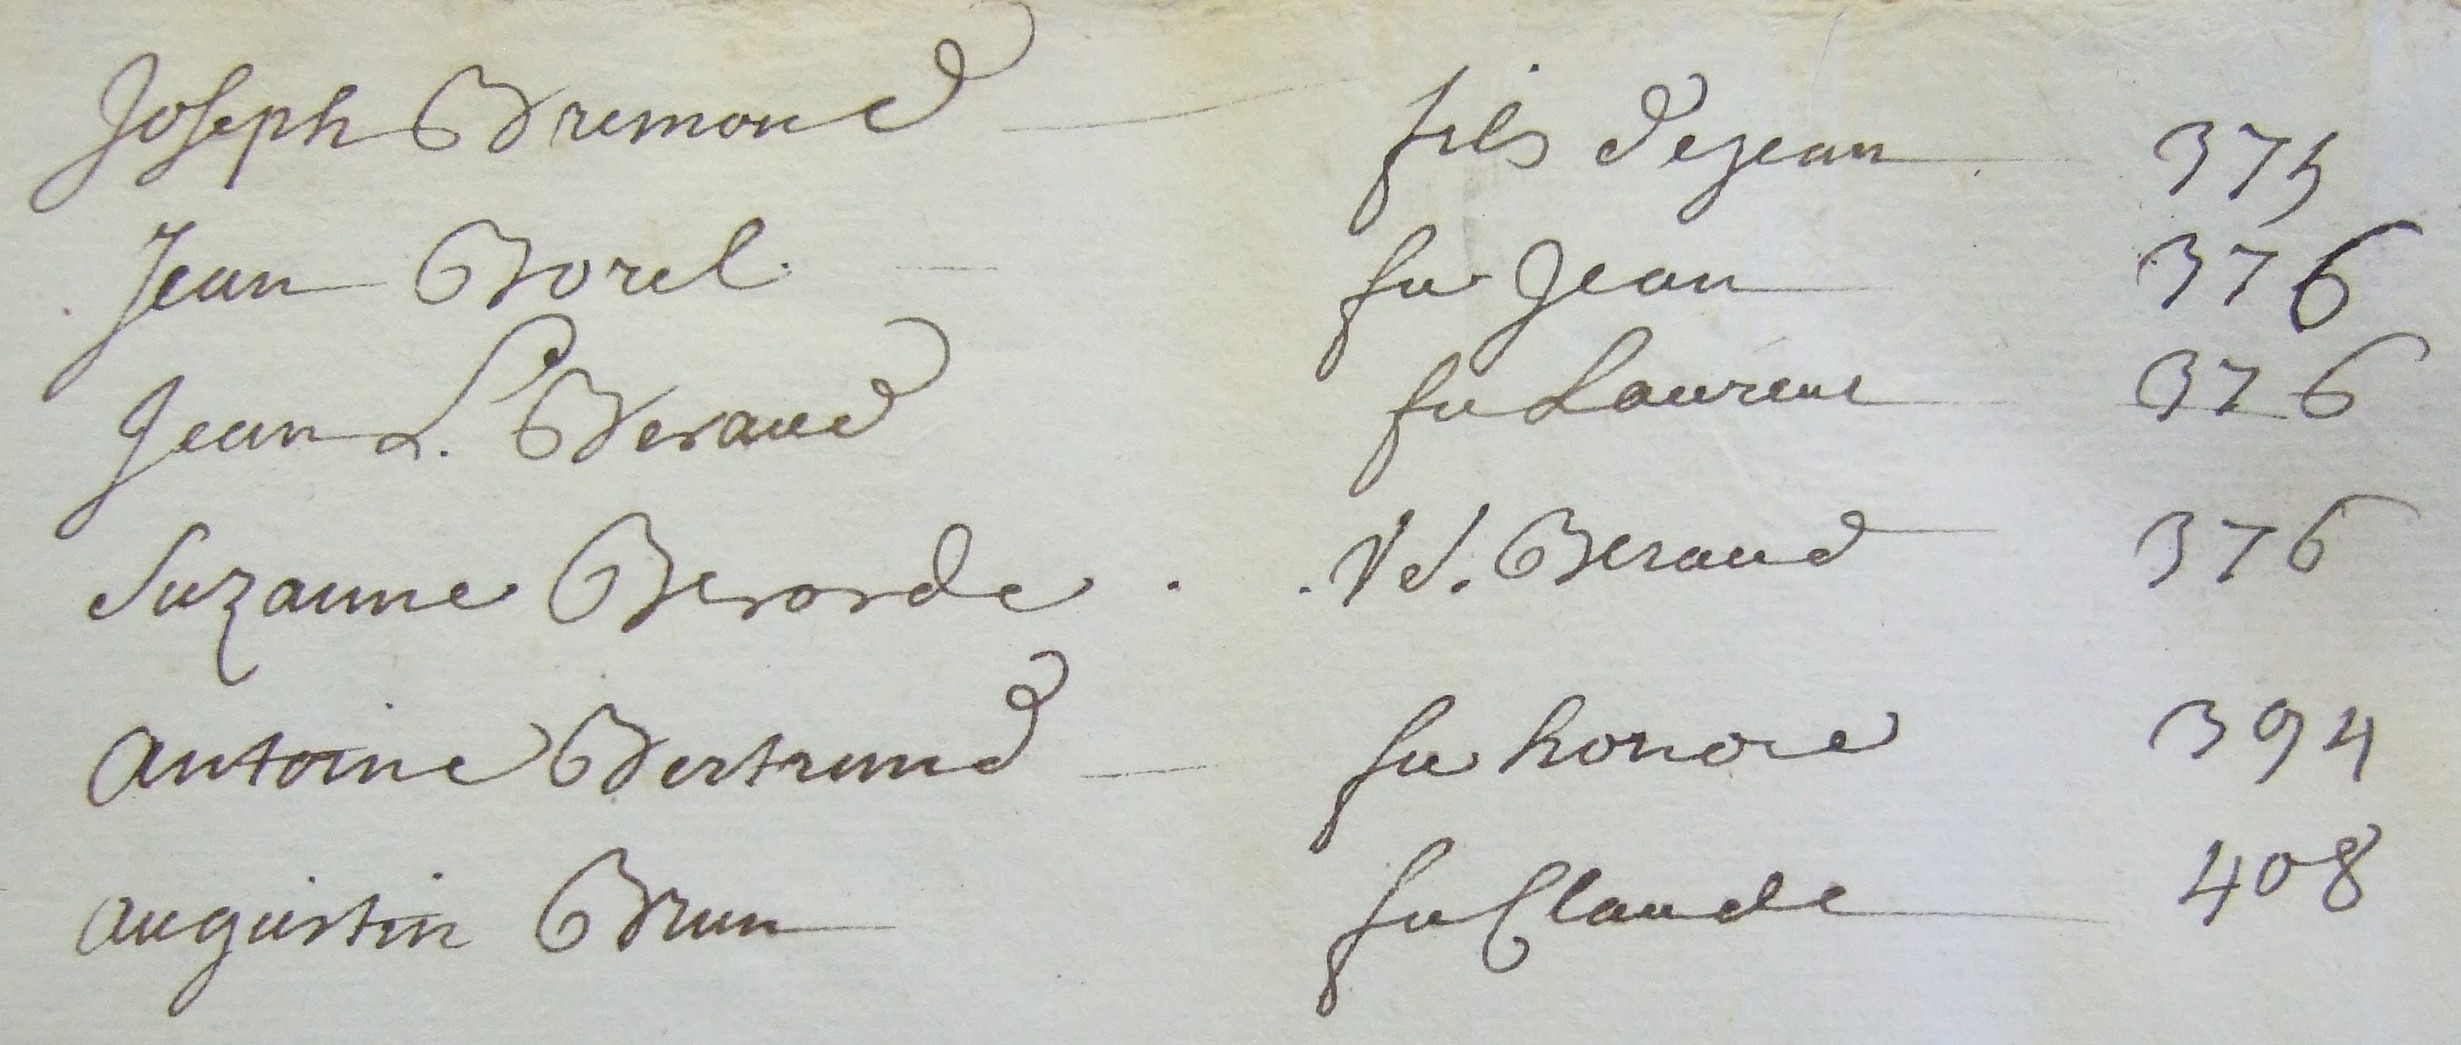 Joseph Bremond fils de jean 375
Jean Borel fu Jean 376
Jean L. Beraud fu Laurent 376
Suzanne Berarde Ve. Beraud 376
antoine Bertrand fu honore 394
augustin Brun fu Claude 408